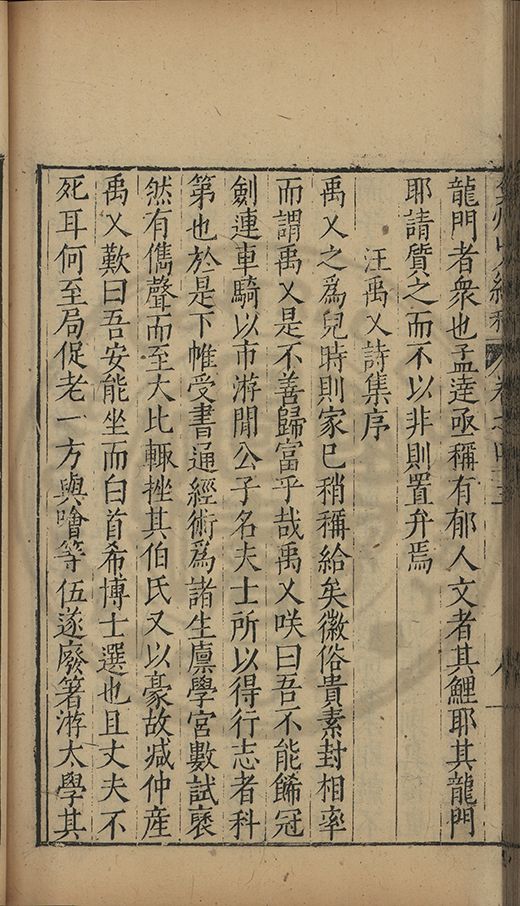 龍門者衆也孟達亟稱有郁人文者其鯉耶其龍門
耶請質之而不以非則置弁焉
汪禹乂詩集序
禹乂之爲兒時則家已稍稱給矣徽俗貴素封相率
而謂禹乂是不善歸富乎哉禹乂咲曰吾不能餙冠
劍連車騎以市游閒公子名夫士所以得行志者科
第也於是下帷受書通經術爲諸生廪學宮數試褎
然有儁聲而至大比輒挫其伯氏又以豪故減仲産
禹乂歎曰吾安能坐而白首希博士選也且丈夫不
死耳何至局促老一方與噲等伍遂廢箸游太學其